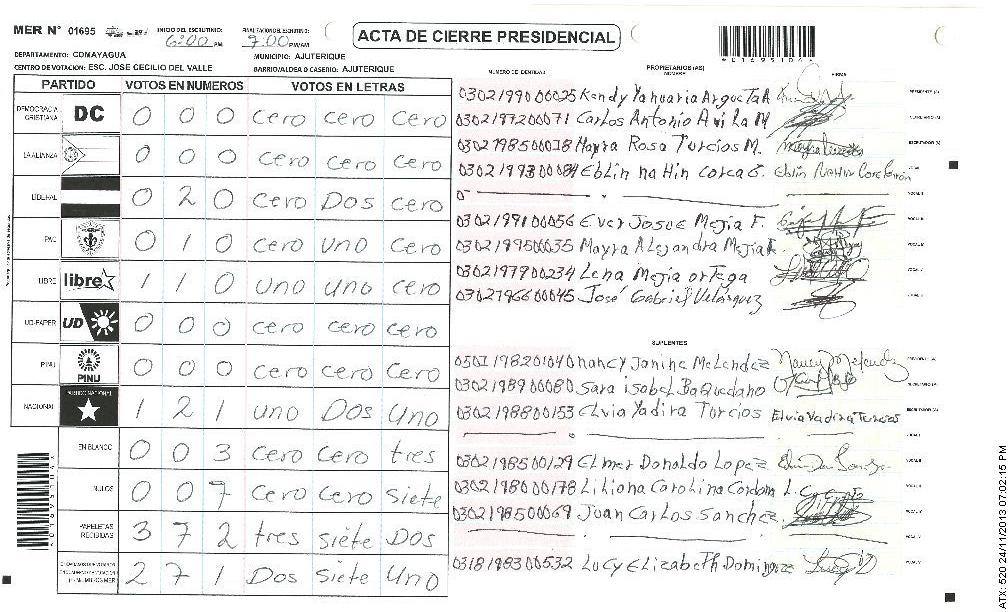 MER N° 01695 INICIO DEL ESCRUTINIO: 6:00 PM FINALIZACION DEL ESCRUTINIO: 7:00 PM/AM
ACTA DE CIERRE PRESIDENCIAL
DEPARTAMENTO: COMAYAGUA MUNICIPIO: AJUTERIQUE
CENTRO DE VOTACION: ESC. JOSE CECILIO DEL VALLE BARRIO/ALDEA O CASERIO: AJUTERIQUE
PARTIDO VOTOS EN NUMEROS VOTOS EN LETRAS
DEMOCRACIA CRISTIANA DC 0 0 0 Cero Cero Cero
LA ALIANZA 0 0 0 Cero Cero Cero
LIBERAL 0 2 0 Cero Dos Cero
PAC 0 1 0 Cero uno Cero
LIBRE libre 1 1 0 uno uno Cero
UD-FAPER UD 0 0 0 Cero Cero Cero
PINU PINU 0 0 0 Cero Cero Cero
NACIONAL PARTIDO NACIONAL 1 2 1 uno Dos Uno
EN BLANCO 0 0 3 Cero Cero tres
NULOS 0 0 7 Cero Cero Siete
PAPELETAS RECIBIDAS 3 7 2 tres siete Dos
2 7 1 Dos Siete Uno
NUMERO DE IDENTIDAD PROPIETARIOS (AS) NOMBRE FIRMA
0302199000025 Kendy Yanuaria Argueta A
0302197200071 Carlos Antonio Avila M
0302198500018 Mayra Rosa Turcios M.
0302199300084 Eblin
0302199100056 Ever Josue Mejia F.
0302199500035 Mayra Alejandra Mejia F.
0302197900234 Lena Mejia ortega
0302196600045 José Gabriel Velásquez
SUPLENTES
NUMERO DE IDENTIDAD NOMBRE FIRMA
0501198201040 nancy Janine Melendez
0302198900080 Sara isabel Baquedano
0302198800153 Elvia Yadira Turcios Elvia Yadira Turcios
0302198500129 Elmer Donaldo Lopez
0302198000178 Liliana Carolina
0302198500069 Juan Carlos Sanchez
0318198300532 Lucy Elizabeth Dominguez
ATX: 520 24/11/2013 07:02:15 PM